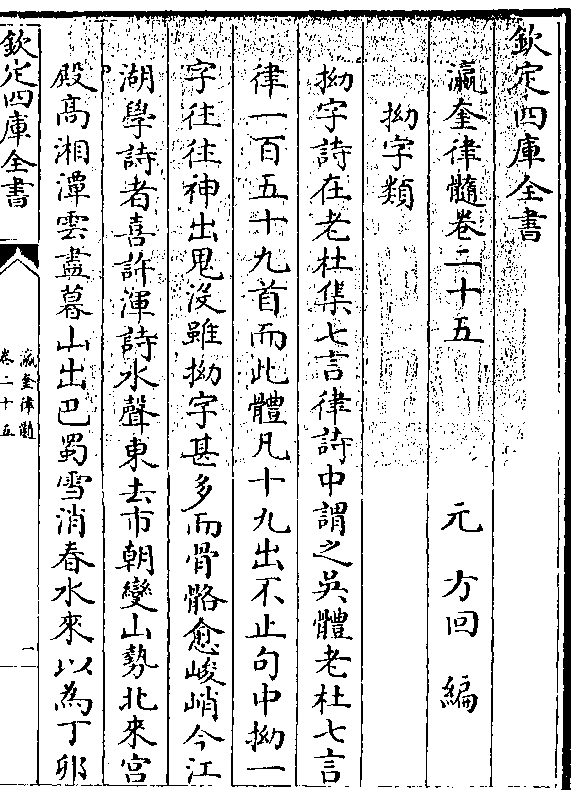 欽定四庫全書
瀛奎律髓卷二十五
元 方回 編
拗字類
拗字詩在老杜集七言律詩中謂之吳體老杜七言
律一百五十九首而此體凡十九出不止句中拗一
字往往神出鬼沒雖拗字甚多而骨骼愈峻峭今江
湖學詩者喜許渾詩水聲東去市朝變山勢北來宮
殿髙湘潭雲盡暮山出巴蜀雪消春水來以為丁卯
欽定四庫全書
瀛奎律髓
卷二十五
一